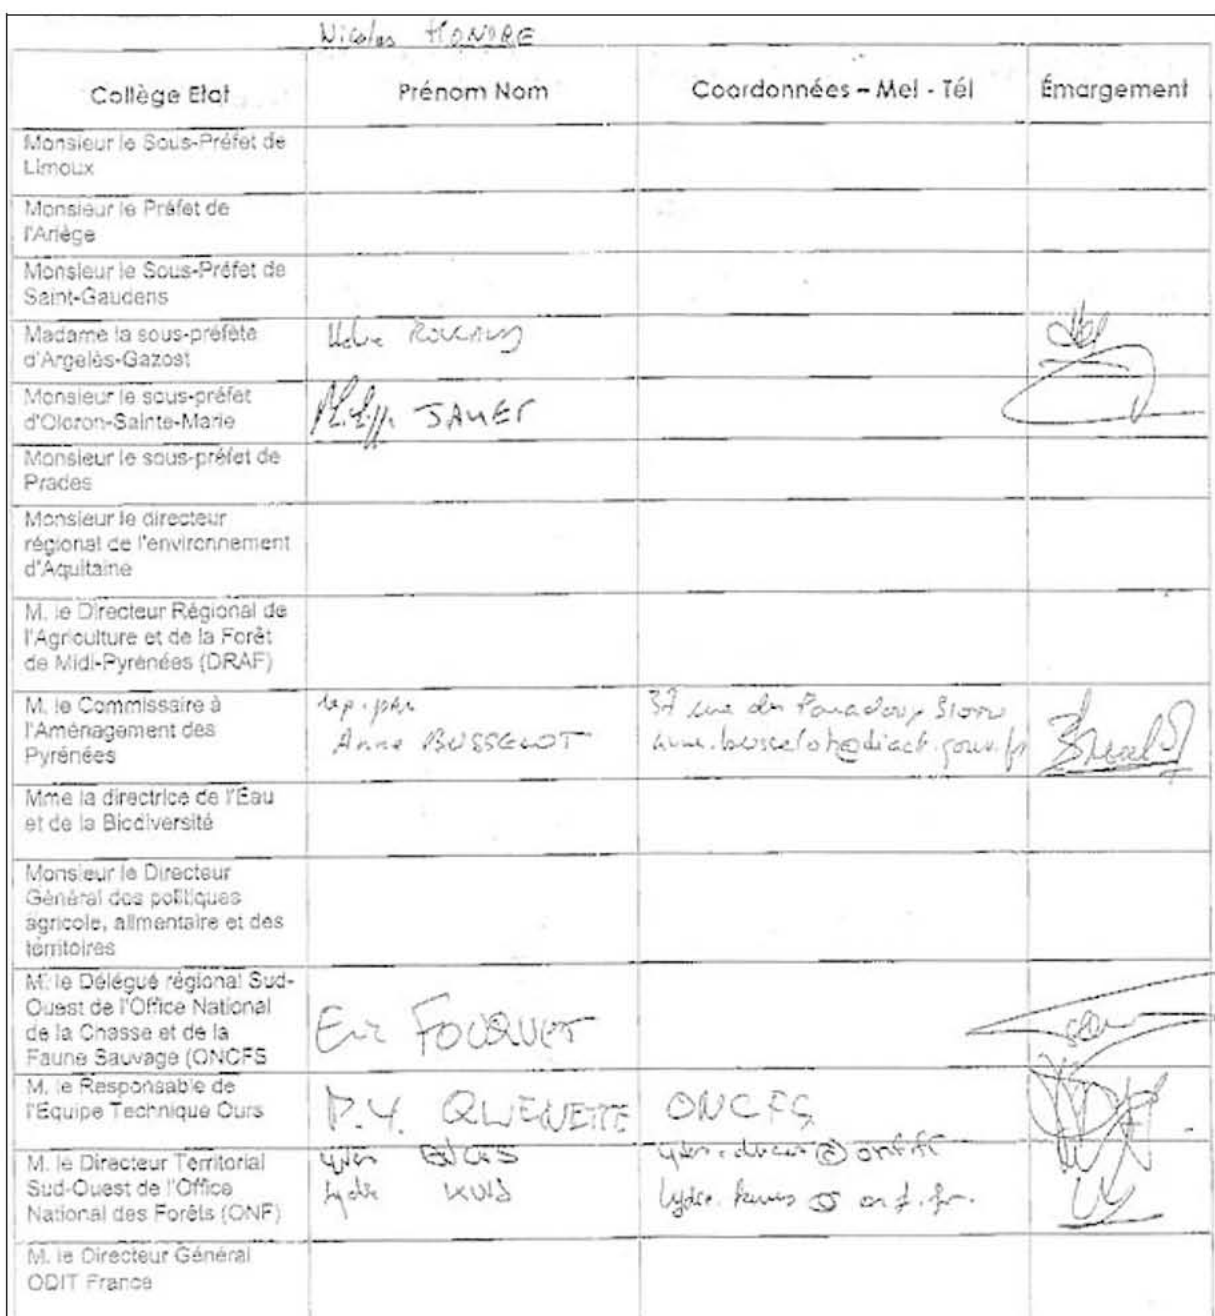 Nicolas HONORE
Collège Etat
Prénom Nom
Coordonnées – Mel - Tél
Émargement
Monsieur le Sous-Préfet de
Limoux
Monsieur le Préfet de
l'Ariège
Monsieur le Sous-Préfet de
Saint-Gaudens
Madame la sous-préfète
d'Argelès-Gazost
Monsieur le sous-préfet
d'Oloron-Sainte-Marie
JAMET
Monsieur le sous-préfet de
Prades
Monsieur le directeur
régional de l'environnement
d'Aquitaine
M. le Directeur Régional de
l'Agriculture et de la Forêt
de Midi-Pyrénées (DRAF)
M. le Commissaire à
l'Aménagement des
Pyrénées
rep. par
Anne BUSSELOT
anne.busselot@diact.gouv.fr
Mme la directrice de l'Eau
et de la Biodiversité
Monsieur le Directeur
Général des politiques
agricole, alimentaire et des
territoires
M. le Délégué régional Sud-
Ouest de l'Office National
de la Chasse et de la
Faune Sauvage (ONCFS
Eric FOUQUET
M. le Responsable de
l'Equipe Technique Ours
P.Y. QUENETTE
ONCFS
M. le Directeur Territorial
Sud-Ouest de l'Office
National des Forêts (ONF)
Lydie
M. le Directeur Général
ODIT France